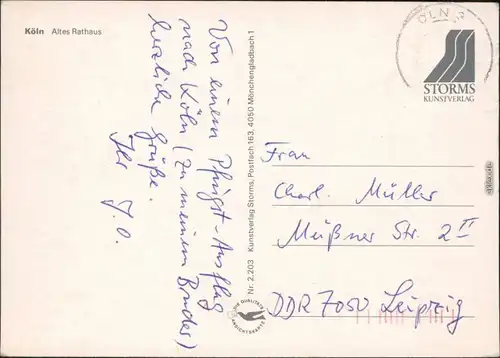 Köln Altes Rathaus
Von einem Pfingst-Ausflug
nach Köln (zu meinem Bruder)
herzliche Grüße.
Ihr J. O.
Nr. 2.203 Kunstverlag Storms, Postfach 163, 4050 Mönchengladbach 1
KÖLN
STORMS
KUNSTVERLAG
Frau
Charl. Müller
Meißner Str. 2 II
DDR 7050 Leipzig
QUALITÄTS
ANSICHTSKARTE